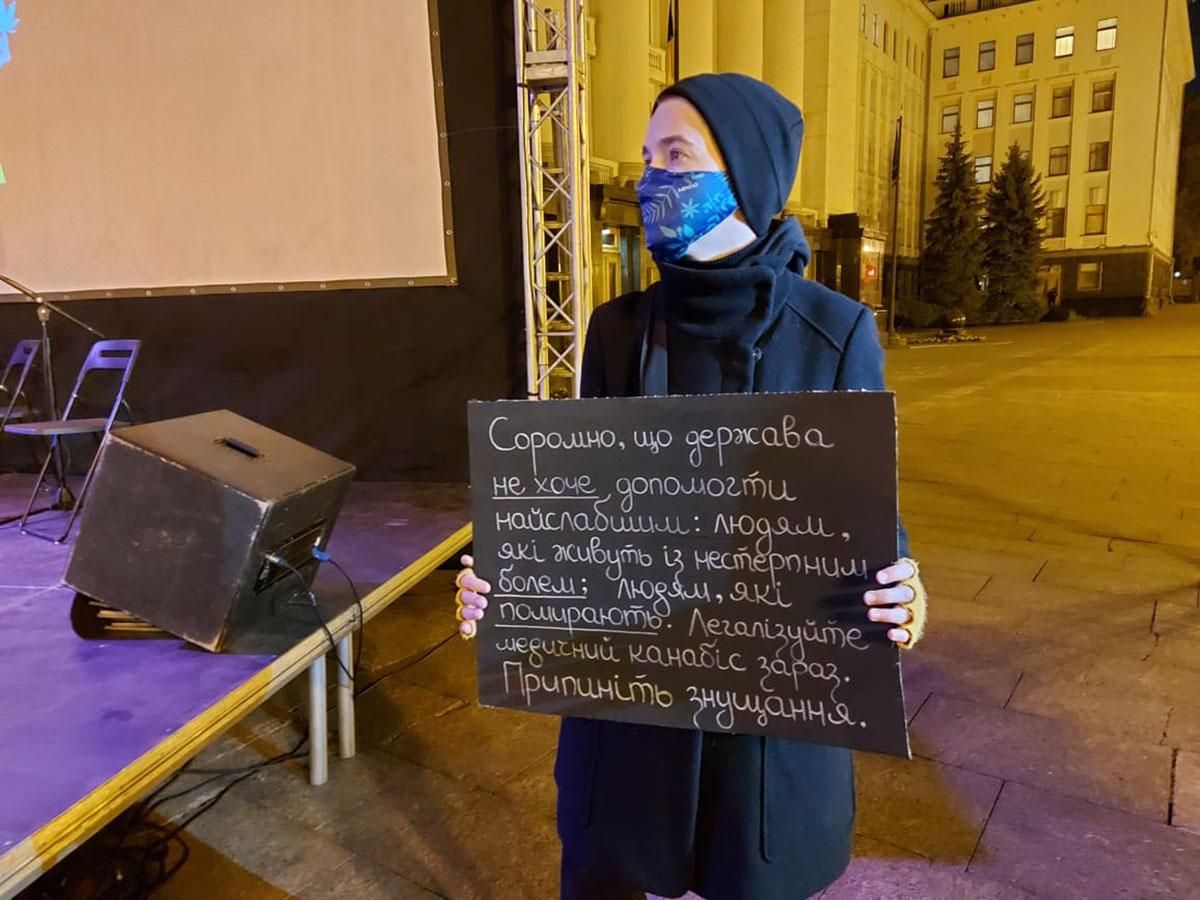 Соромно, що держава
не хоче допомогти
найслабшим: людям,
які живуть із нестерпним
болем; людям, які
помирають. Легалізуйте
медичний канабіс зараз.
Припиніть знущання.